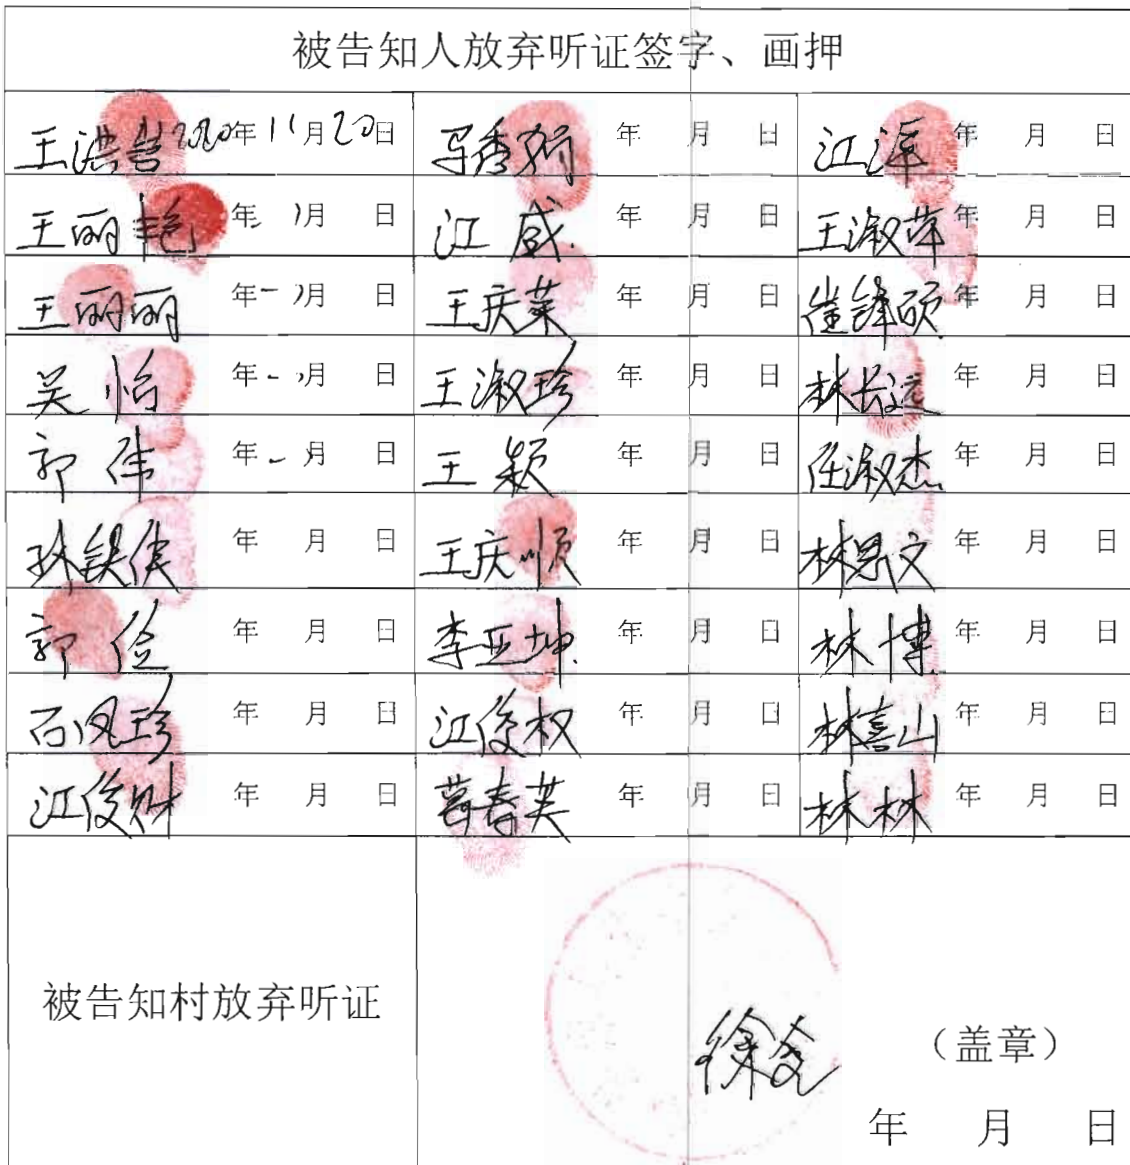 被告知人放弃听证签字、画押
王洪喜 2020年11月20日 马秀 年 月 日 江 年 月 日
王丽艳 年 月 日 江威 年 月 日 王淑萍 年 月 日
王丽丽 年 月 日 王庆 年 月 日 崔锋硕 年 月 日
吴怡 年 月 日 王淑珍 年 月 日 林长远 年 月 日
郭伟 年 月 日 王颖 年 月 日 任淑杰 年 月 日
孙铁侠 年 月 日 王庆顺 年 月 日 林思文 年 月 日
郭俭 年 月 日 李亚坤 年 月 日 林博 年 月 日
石凤珍 年 月 日 江俊权 年 月 日 林喜山 年 月 日
江俊财 年 月 日 葛春芙 年 月 日 林林 年 月 日
被告知村放弃听证
徐
（盖章）
年 月 日